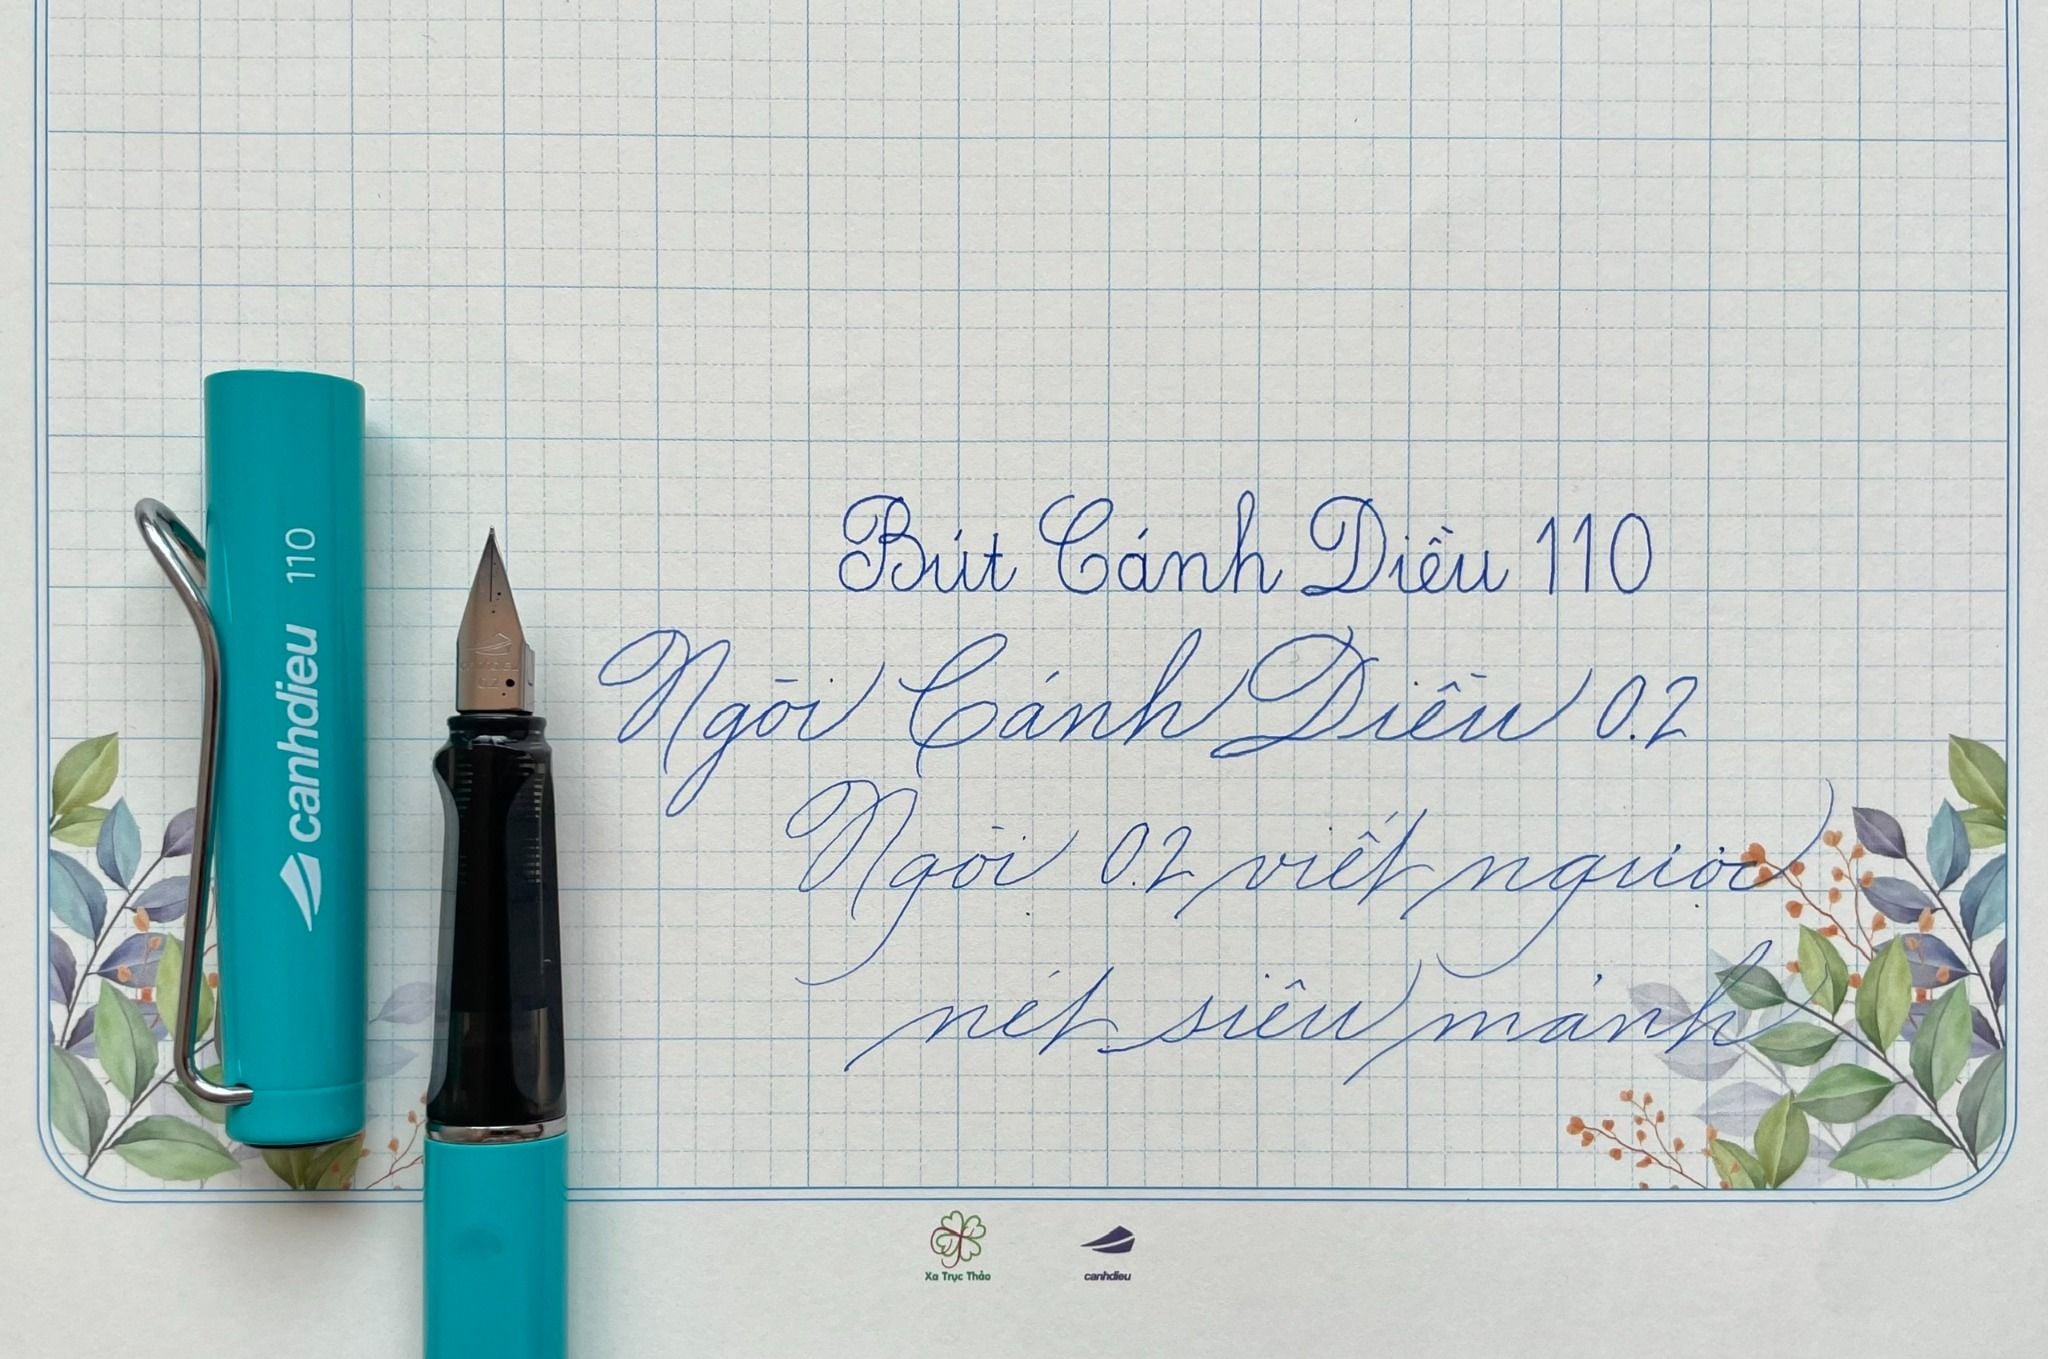 canhdieu 110
0.2
Bút Cánh Diều 110
Ngòi Cánh Diều 0.2
Ngòi 0.2 viết ngược
nét siêu mảnh
Xa Trục Thảo
canhdieu